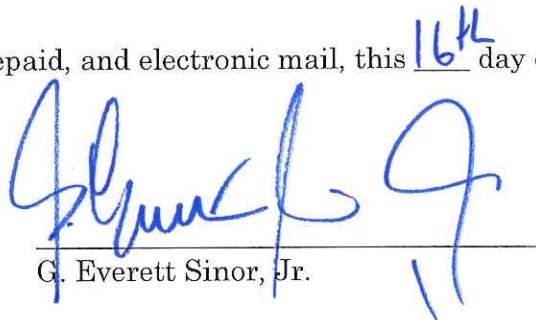 epaid, and electronic mail, this 16th day
G. Everett Sinor, Jr.